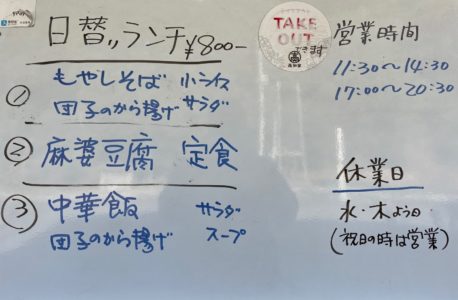 日替〃ランチ ¥800-
① もやしそば 小ライス
団子のから揚げ サラダ
② 麻婆豆腐 定食
③ 中華飯 サラダ
団子のから揚げ スープ
TAKE
OUT
できます
営業時間
11:30~14:30
17:00~20:30
休業日
水・木よう日
(祝日の時は営業)